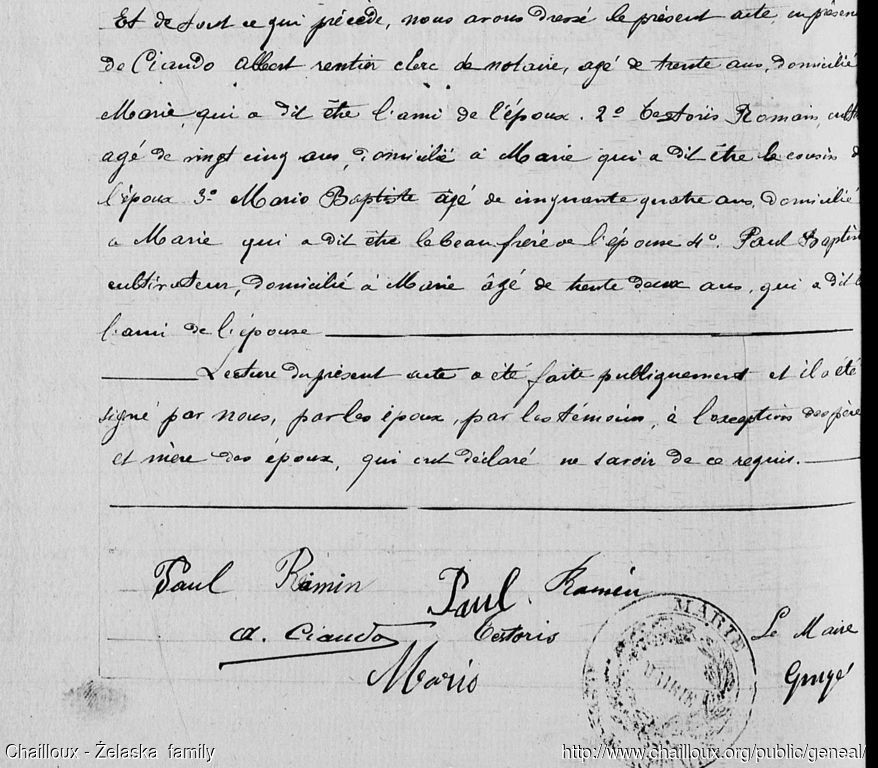 Et de tout ce qui précède, nous avons dressé le présent acte, en présen
De Ciando Albert rentier clerc de notaire, agé de trente ans, domicilié
Marie, qui a dit être l'ami de l'époux. 2º Testoris Romain, cult
agé de vingt cinq ans, domicilié à Marie qui a dit être le cousin d
l'époux 3º Mario Baptiste âgé de cinquante quatre ans, domicilié
a Marie qui a dit être le beau frère de l'épouse 4º. Paul Baptis
cultivateur, domicilié à Marie âgé de trente deux ans, qui a dit
l'ami de l'épouse
Lecture du présent acte a été faite publiquement et il a été
signé par nous, par les époux, par les témoins, à l'exception des père
et mère des époux, qui ont déclaré ne savoir de ce requis.
Paul Romin Paul Romin
A. Ciando Testoris Le Maire
Mario
MARIE
MAIRIE
Chailloux - Želaska family http://www.chailloux.org/public/geneal/